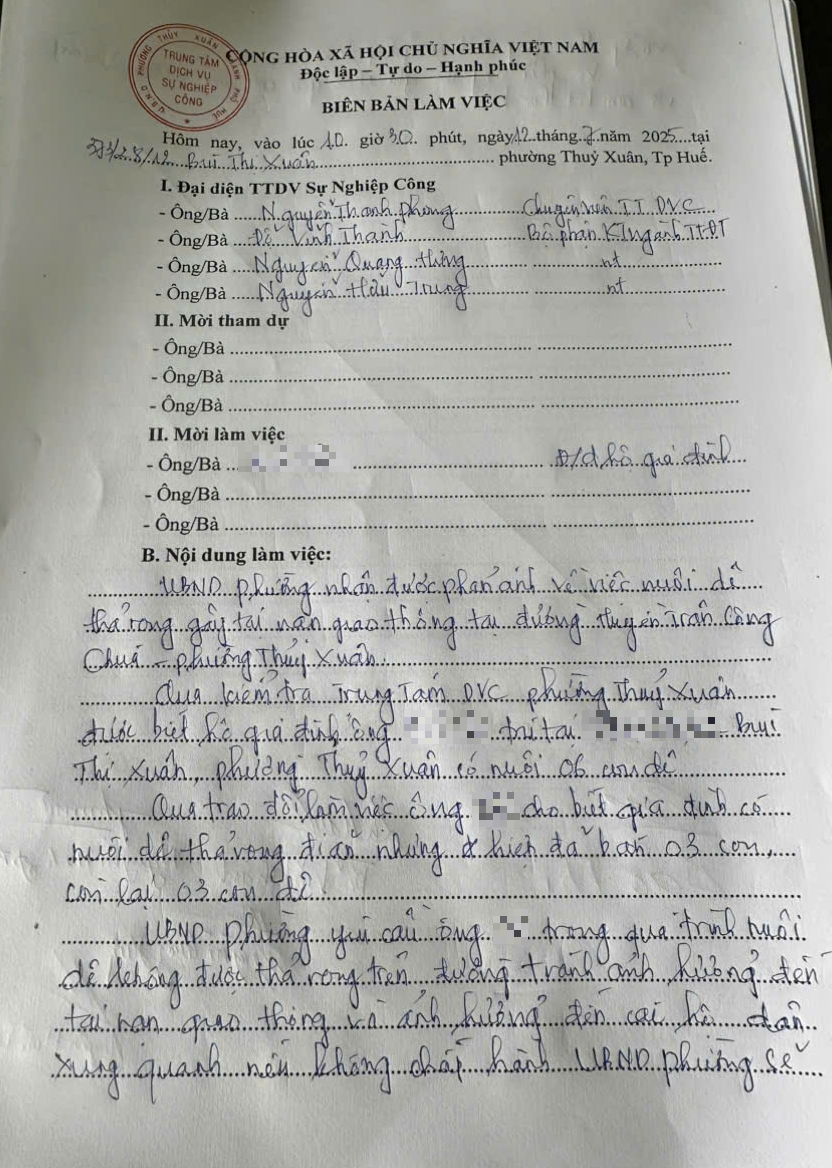 U.B.N.D PHƯỜNG THỦY XUÂN THÀNH PHỐ HUẾ
TRUNG TÂM
DỊCH VỤ
SỰ NGHIỆP
CÔNG
CỘNG HÒA XÃ HỘI CHỦ NGHĨA VIỆT NAM
Độc lập – Tự do – Hạnh phúc
BIÊN BẢN LÀM VIỆC
Hôm nay, vào lúc 10 giờ 30 phút, ngày 12 tháng 7 năm 2025 tại
Bùi Thị Xuân phường Thuỷ Xuân, Tp Huế.
I. Đại diện TTDV Sự Nghiệp Công
- Ông/Bà Nguyễn Thanh Phong Chuyên viên TT DVC
- Ông/Bà Đỗ Vĩnh Thành Bộ phận TTĐT
- Ông/Bà Nguyễn Quang nt
- Ông/Bà Nguyễn Hữu Trung nt
II. Mời tham dự
- Ông/Bà
- Ông/Bà
- Ông/Bà
II. Mời làm việc
- Ông/Bà Đ/d hộ gia đình
- Ông/Bà
- Ông/Bà
B. Nội dung làm việc:
UBND phường nhận được phản ánh về việc nuôi dê
thả rong gây tai nạn giao thông tại đường Huyền Trân Công
Chúa – phường Thủy Xuân.
Qua kiểm tra Trung Tâm DVC phường Thuỷ Xuân
được biết hộ gia đình ông trú tại Bùi
Thị Xuân, phường Thuỷ Xuân có nuôi 06 con dê
Qua trao đổi làm việc ông cho biết gia đình có
nuôi dê thả rong đi ăn nhưng hiện đã bán 03 con,
còn lại 03 con dê.
UBND phường yêu cầu ông trong quá trình nuôi
dê không được thả rong trên đường tránh ảnh hưởng đến
tai nạn giao thông và ảnh hưởng đến các hộ dân
xung quanh nếu không chấp hành UBND phường sẽ